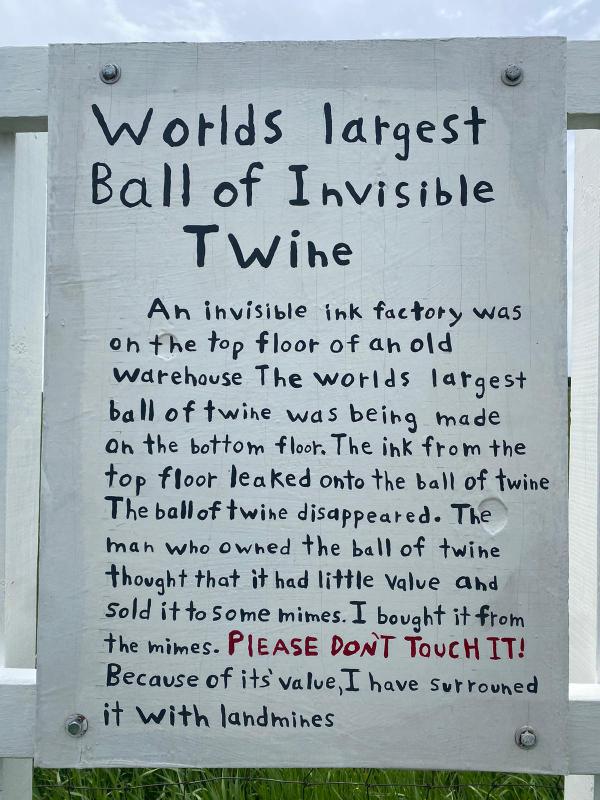 Worlds largest
Ball of Invisible
Twine
An invisible ink factory was
on the top floor of an old
warehouse The worlds largest
ball of twine was being made
on the bottom floor. The ink from the
top floor leaked onto the ball of twine
The ball of twine disappeared. The
man who owned the ball of twine
thought that it had little value and
sold it to some mimes. I bought it from
the mimes. PLEASE DON'T TOUCH IT!
Because of its' value, I have surrouned
it with landmines